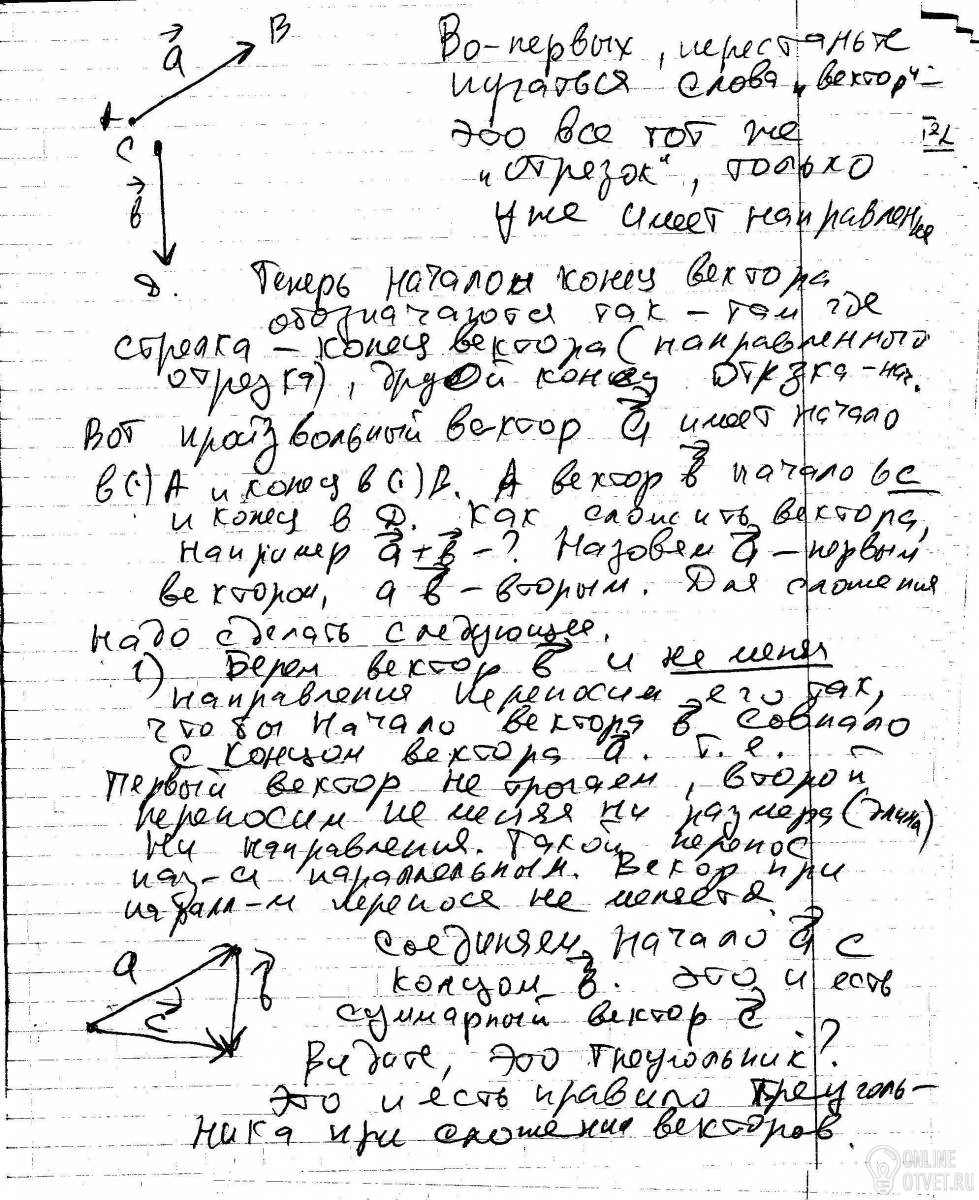 a⃗ B
A
C
b⃗
D.
Во-первых, перестаньте
пугаться слова "вектор" –
это все тот же
"отрезок", только
уже имеет направление
Теперь начало и конец вектора
обозначаются так – там где
стрелка – конец вектора (направленного
отрезка), другой конец отрзка – нач.
Вот произвольный вектор a⃗ имеет начало
в (·) A и конец в (·) B. А вектор b⃗ начало в C
и конец в D. Как сложить вектора,
например a⃗ + b⃗ – ? Назовем a⃗ – первым
вектором, а b⃗ – вторым. Для сложения
надо сделать следующее.
1) Берем вектор b⃗ и не меняя
направления переносим его так,
чтобы начало вектора b⃗ совпало
с концом вектора a⃗. т.е. –
первый вектор не трогаем, второй
переносим не меняя ни размера (длина)
ни направления. Такой перенос
наз-ся параллельным. Векор при
паралл-м переносе не меняется.
Соединяем начало a⃗ с
концом b⃗. это и есть
суммарный вектор c⃗
Видите, это треугольник?
Это и есть правило треуголь-
ника при сложении векторов.
a
b⃗
c⃗
ONLINE
OTVET.RU